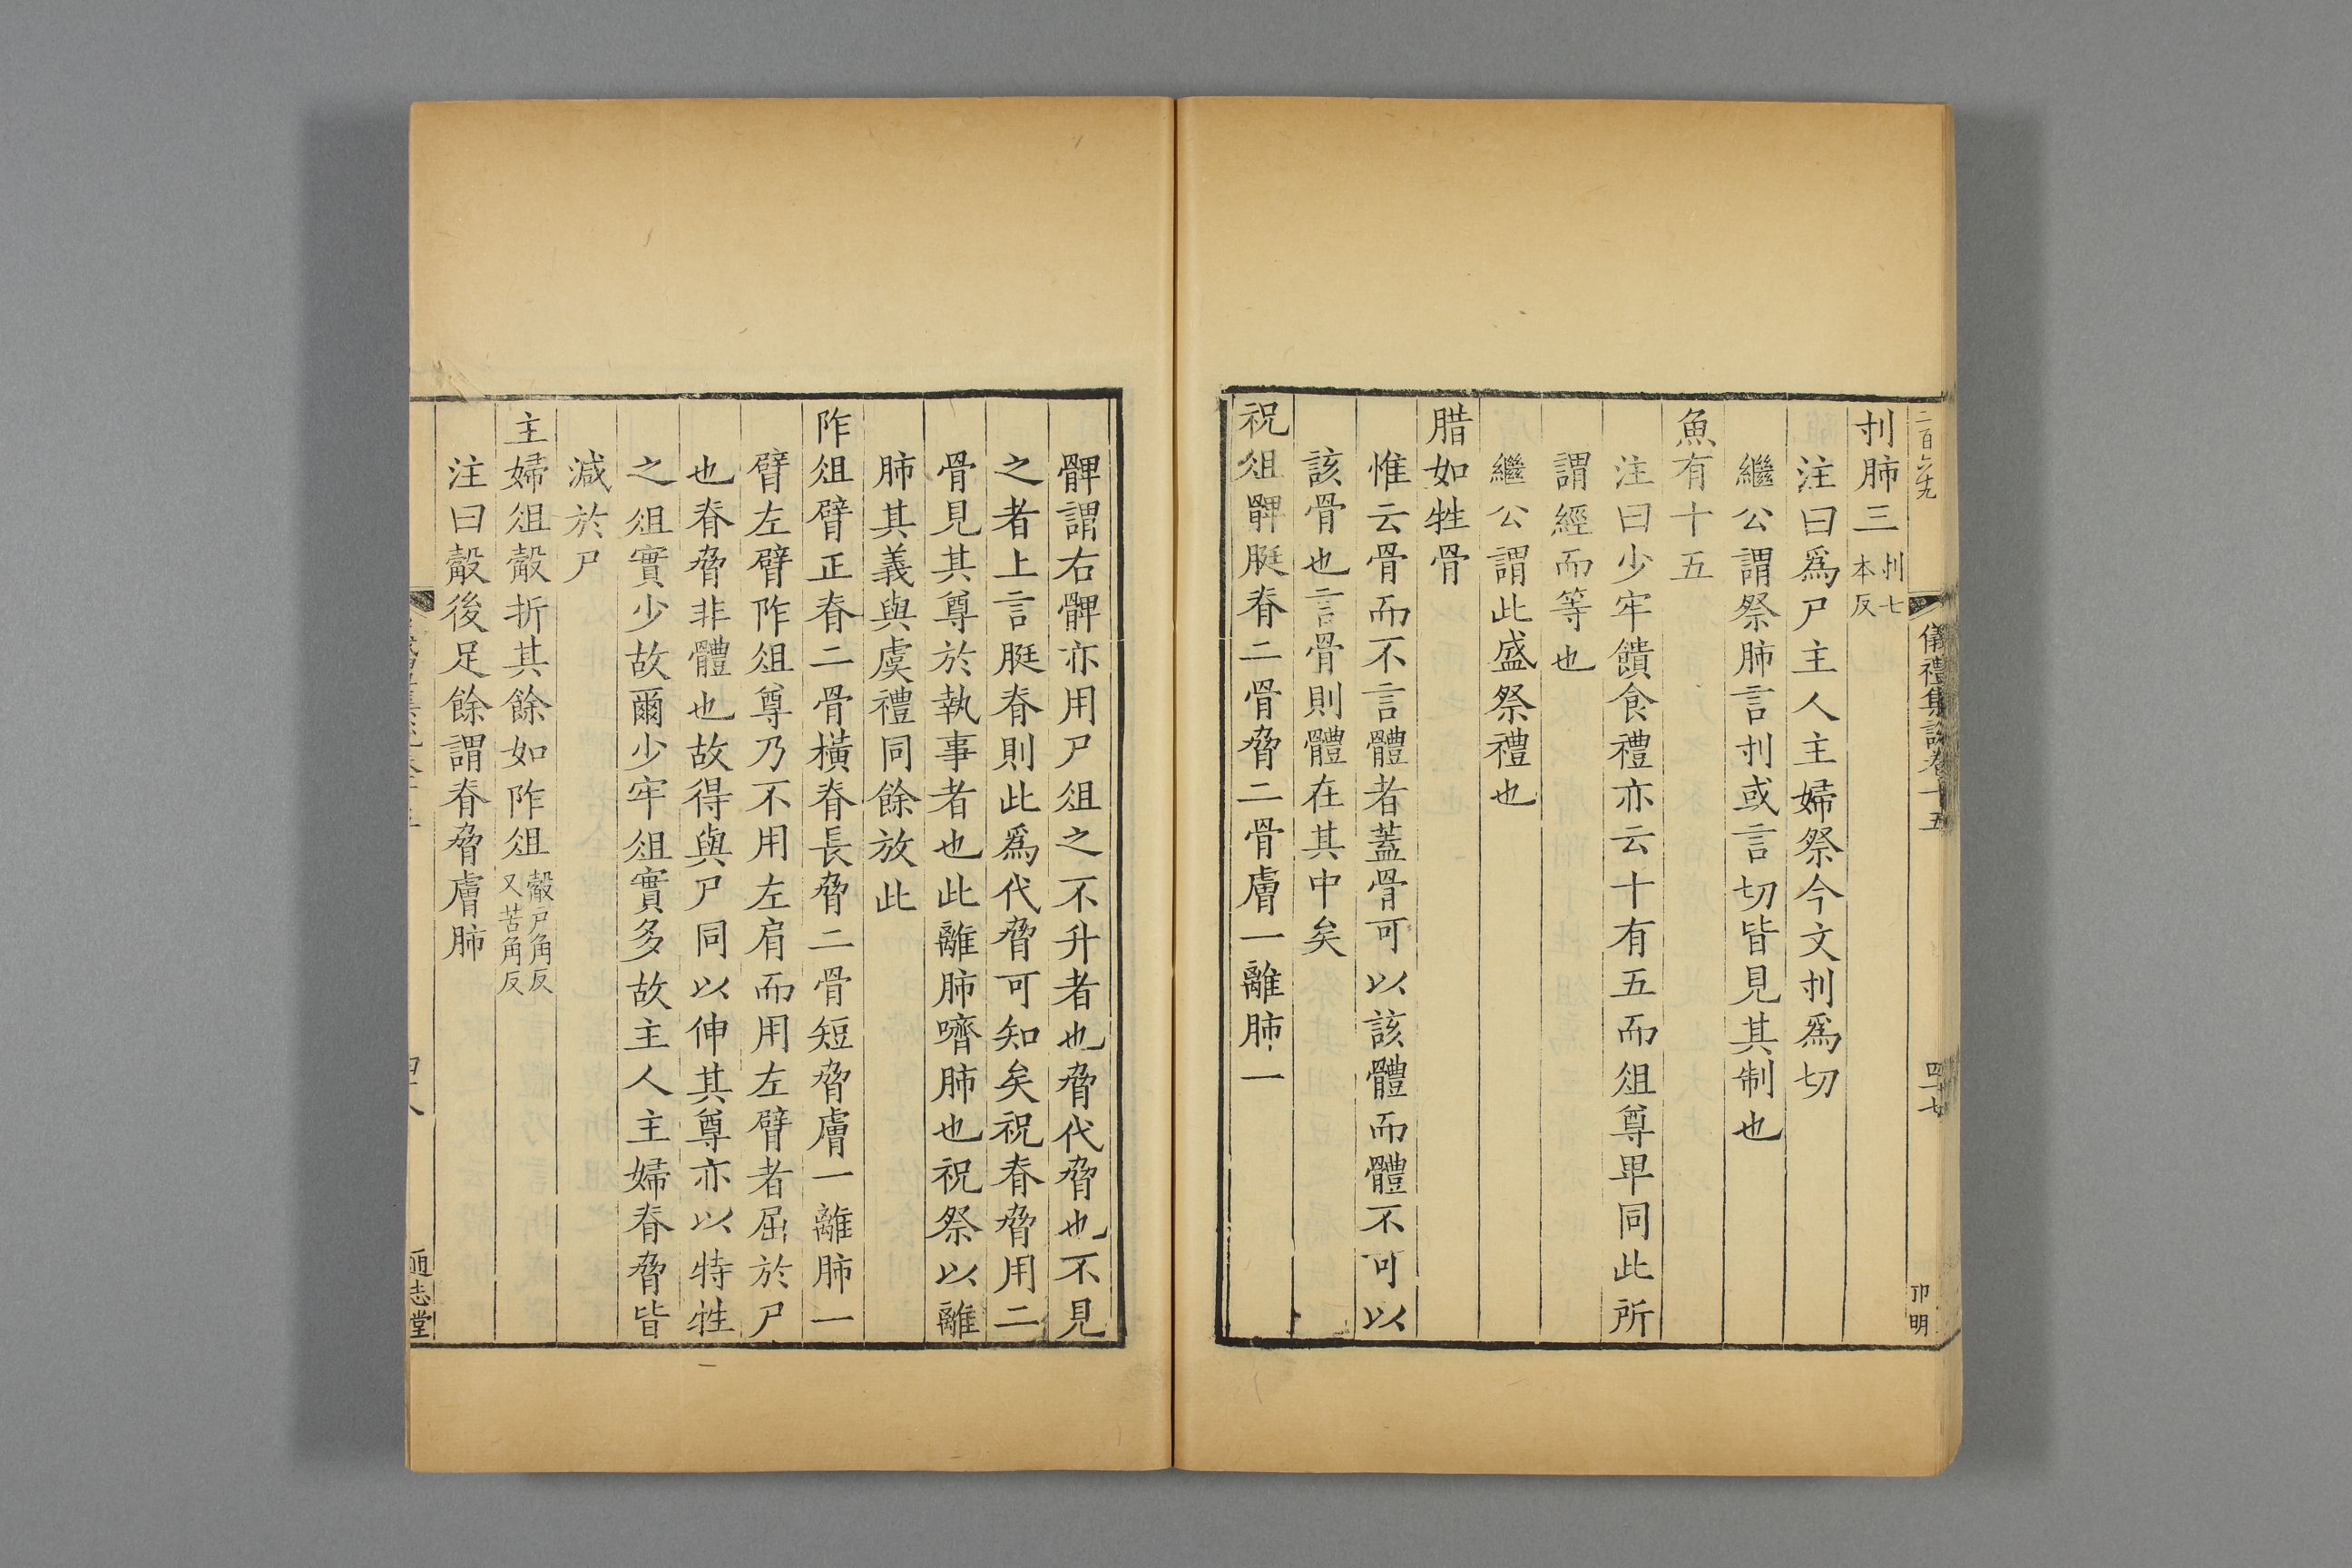 二百六十九
儀禮集說卷十五
四十七
卬明
刌肺三刌七本反
注曰爲尸主人主婦祭今文刌爲切
繼公謂祭肺言刌或言切皆見其制也
魚有十五
注曰少牢饋食禮亦云十有五而俎尊卑同此所
謂經而等也
繼公謂此盛祭禮也
腊如牲骨
惟云骨而不言體者蓋骨可以該體而體不可以
該骨也言骨則體在其中矣
祝俎髀脡脊二骨脅二骨膚一離肺一
髀謂右髀亦用尸俎之不升者也脅代脅也不見
之者上言脡脊則此爲代脅可知矣祝脊脅用二
骨見其尊於執事者也此離肺嚌肺也祝祭以離
肺其義與虞禮同餘放此
阼俎臂正脊二骨橫脊長脅二骨短脅膚一離肺一
臂左臂阼俎尊乃不用左肩而用左臂者屈於尸
也脊脅非體也故得與尸同以伸其尊亦以特牲
之俎實少故爾少牢俎實多故主人主婦脊脅皆
減於尸
主婦俎觳折其餘如阼俎觳戶角反又苦角反
注曰觳後足餘謂脊脅膚肺
通志堂